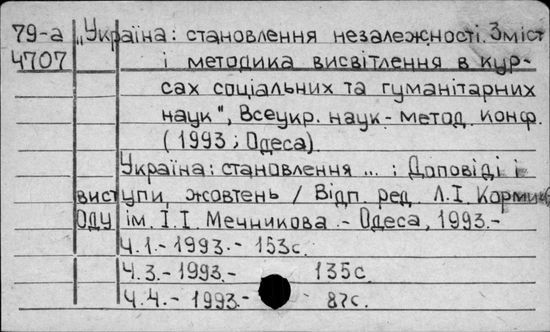 79-а „Україна: становлення незалежності. Зміст
4707 і методика висвітлення в кур-
сах соціальних та гуманітарних
наук", Всеукр. наук.-метод. конф.
(1993; Одеса).
Україна: становлення ... : Доповіді і
виступи, жовтень / Відп. ред. Л.І. Кормич
ОДУ ім. І.І. Мечникова. - Одеса, 1993.-
Ч.1.-1993.- 153с.
Ч.3.-1993.- 135с
Ч.4.-1993.- 87с.